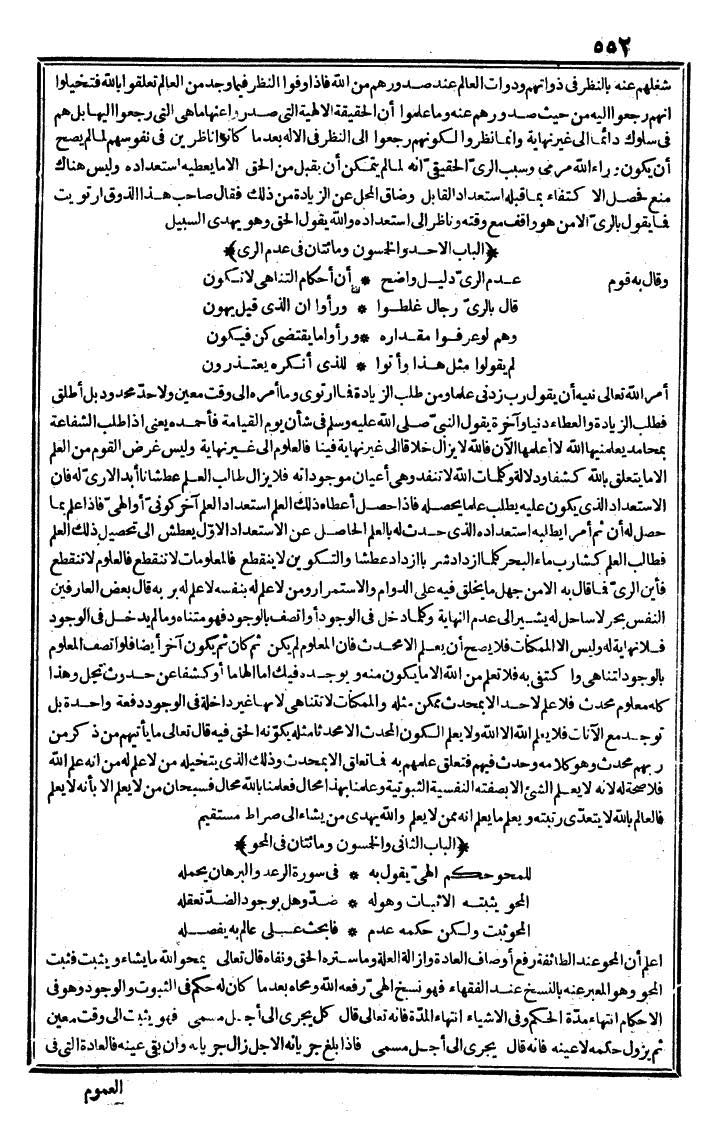 ٥٥٢
شغلهم عنه بالنظر فى ذواتهم وذوات العالم عند صدورهم من الله فاذا وفوا النظر فيما وجد من العالم تعلقوا بالله فتخيلوا
انهم رجعوا اليه من حيث صدورهم عنه وما علموا أن الحقيقة الالهية التى صدروا عنها ماهى التى رجعوا اليها بل هم
فى سلوك دائما الى غير نهاية وانما نظروا لكونهم رجعوا الى النظر فى الاله بعد ما كانوا ناظرين فى نفوسهم لما لم يصح
أن يكون وراء الله مرمى وسبب الرىّ الحقيقىّ انه لما لم يتمكن أن يقبل من الحق الا ما يعطيه استعداده وليس هناك
منع فحصل الا كتفاء بما قبله استعداد القابل وضاق المحل عن الزيادة من ذلك فقال صاحب هذا الذوق ارتويت
فما يقول بالرىّ الا من هو واقف مع وقته وناظر الى استعداده والله يقول الحق وهو يهدى السبيل
﴿الباب الاحد والخسون ومائتان فى عدم الرى﴾
وقال به قوم عدم الرىّ دليل واضح * أن أحكام التناهى لا تكون
قال بالرىّ رجال غلطوا * ورأوا ان الذى قيل يهون
وهم لو عرفوا مقداره * ورأوا ما يقتضى كن فيكون
لم يقولوا مثل هذا وأتوا * للذى أنكره يعتذرون
أمر الله تعالى نبيه أن يقول رب زدنى علما ومن طلب الزيادة فما ارتوى وما أمره الى وقت معين ولا حدّ محدود بل أطلق
فطلب الزيادة والعطاء دنيا وآخرة يقول النبىّ صلى الله عليه وسلم فى شأن يوم القيامة فأحمده يعنى اذا طلب الشفاعة
بمحامد يعلمنيها الله لا أعلمها الآن فالله لا يزال خلاقا الى غير نهاية فينا فالعلوم الى غير نهاية وليس غرض القوم من العلم
الا ما يتعلق بالله كشفا ودلالة وكلمات الله لا تنفد وهى أعيان موجوداته فلا يزال طالب العلم عطشانا أبدا لا رىّ له فان
الاستعداد الذى يكون عليه يطلب علما يحصله فاذا حصل أعطاه ذلك العلم استعداد العلم آخر كونىّ أو الهىّ فاذا علم بما
حصل له أن ثم أمرا يطلبه استعداده الذى حدث له بالعلم الحاصل عن الاستعداد الاوّل يعطش الى تحصيل ذلك العلم
فطالب العلم كشارب ماء البحر كلما ازداد شربا ازداد عطشا والتكوين لا ينقطع فالمعلومات لا تنقطع فالعلوم لا تنقطع
فأين الرىّ فما قال به الا من جهل ما يخلق فيه على الدوام والاستمرار ومن لا علم له بنفسه لا علم له بربه قال بعض العارفين
النفس بحر لا ساحل له يشير الى عدم النهاية وكلما دخل فى الوجود أو اتصف بالوجود فهو متناه وما لم يدخل فى الوجود
فلا نهاية له وليس الا الممكنات فلا يصح أن يعلم الا محدث فان المعلوم لم يكن ثم كان ثم يكون آخر أيضا فلو اتصف المعلوم
بالوجود لتناهى واكتفى به فلا تعلم من الله الا ما يكون منه ويوجده فيك اما الهاما أو كشفا عن حدوث تجل وهذا
كله معلوم محدث فلا علم لاحد الا بمحدث ممكن مثله والممكنات لا تتناهى لانها غير داخلة فى الوجود دفعة واحدة بل
توجد مع الآنات فلا يعلم الله الا الله ولا يعلم الكون المحدث الا محدثا مثله يكوّنه الحق فيه قال تعالى ما يأتيهم من ذكر من
ربهم محدث وهو كلامه وحدث فيهم فتعلق علمهم به فما تعلق الا بمحدث وذلك الذى يتخيله من لا علم له من انه علم الله
فلا صحة له لانه لا يعلم الشئ الا بصفته النفسية الثبوتية وعلمنا بهذا محال فعلمنا بالله محال فسبحان من لا يعلم الا بأنه لا يعلم
فالعالم بالله لا يتعدّى رتبته ويعلم ما يعلم انه ممن لا يعلم والله يهدى من يشاء الى صراط مستقيم
﴿الباب الثانى والخسون ومائتان فى المحو﴾
للمحو حكم الهىّ يقول به * فى سورة الرعد والبرهان يحمله
المحو يثبته الاثبات وهو له * ضدّ وهل بوجود الضدّ تعقله
المحو ثبت ولكن حكمه عدم * فابحث على عالم به يفصله
اعلم أن المحو عند الطائفة رفع أوصاف العادة وازالة العلة وما ستره الحق ونفاه قال تعالى يمحو الله ما يشاء ويثبت فثبت
المحو وهو المعبر عنه بالنسخ عند الفقهاء فهو نسخ الهىّ رفعه الله ومحاه بعد ما كان له حكم فى الثبوت والوجود وهو فى
الاحكام انتهاء مدّة الحكم وفى الاشياء انتهاء المدّة فانه تعالى قال كل يجرى الى أجل مسمى فهو يثبت الى وقت معين
ثم يزول حكمه لا عينه فانه قال يجرى الى أجل مسمى فاذا بلغ جريانه الاجل زال جريانه وان بقى عينه فالعادة التى فى
العموم